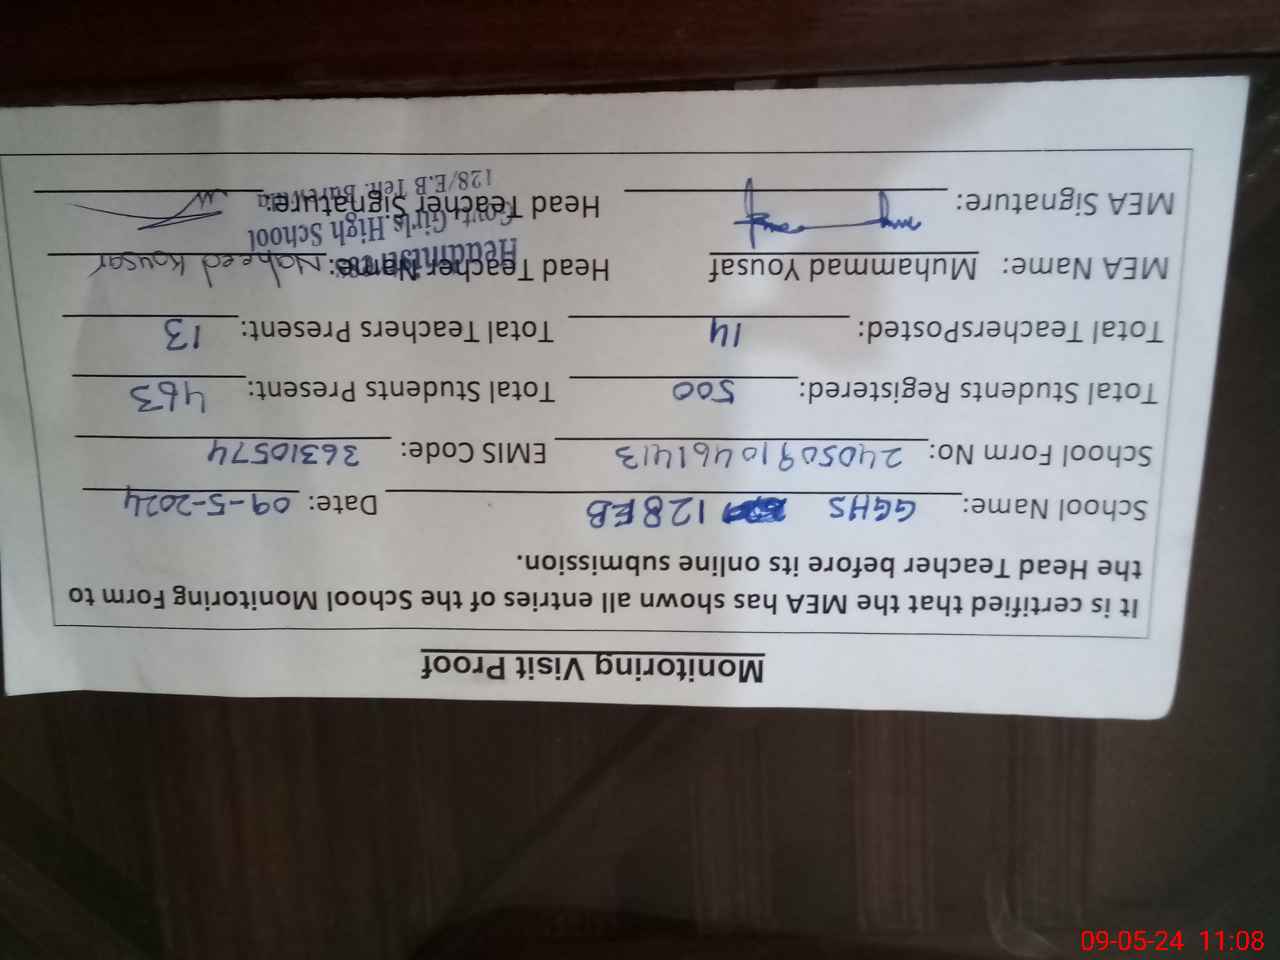 Monitoring Visit Proof
It is certified that the MEA has shown all entries of the School Monitoring Form to
the Head Teacher before its online submission.
School Name: GGHS 128EB Date: 09-5-2024
School Form No: 2405091046 1413 EMIS Code: 36310574
Total Students Registered: 500 Total Students Present: 463
Total TeachersPosted: 14 Total Teachers Present: 13
MEA Name: Muhammad Yousaf Head Teacher Name: Naheed Kousar
MEA Signature: Head Teacher Signature:
Headmistress
Govt. Girls High School
128/E.B Teh. Burewala
09-05-24 11:08